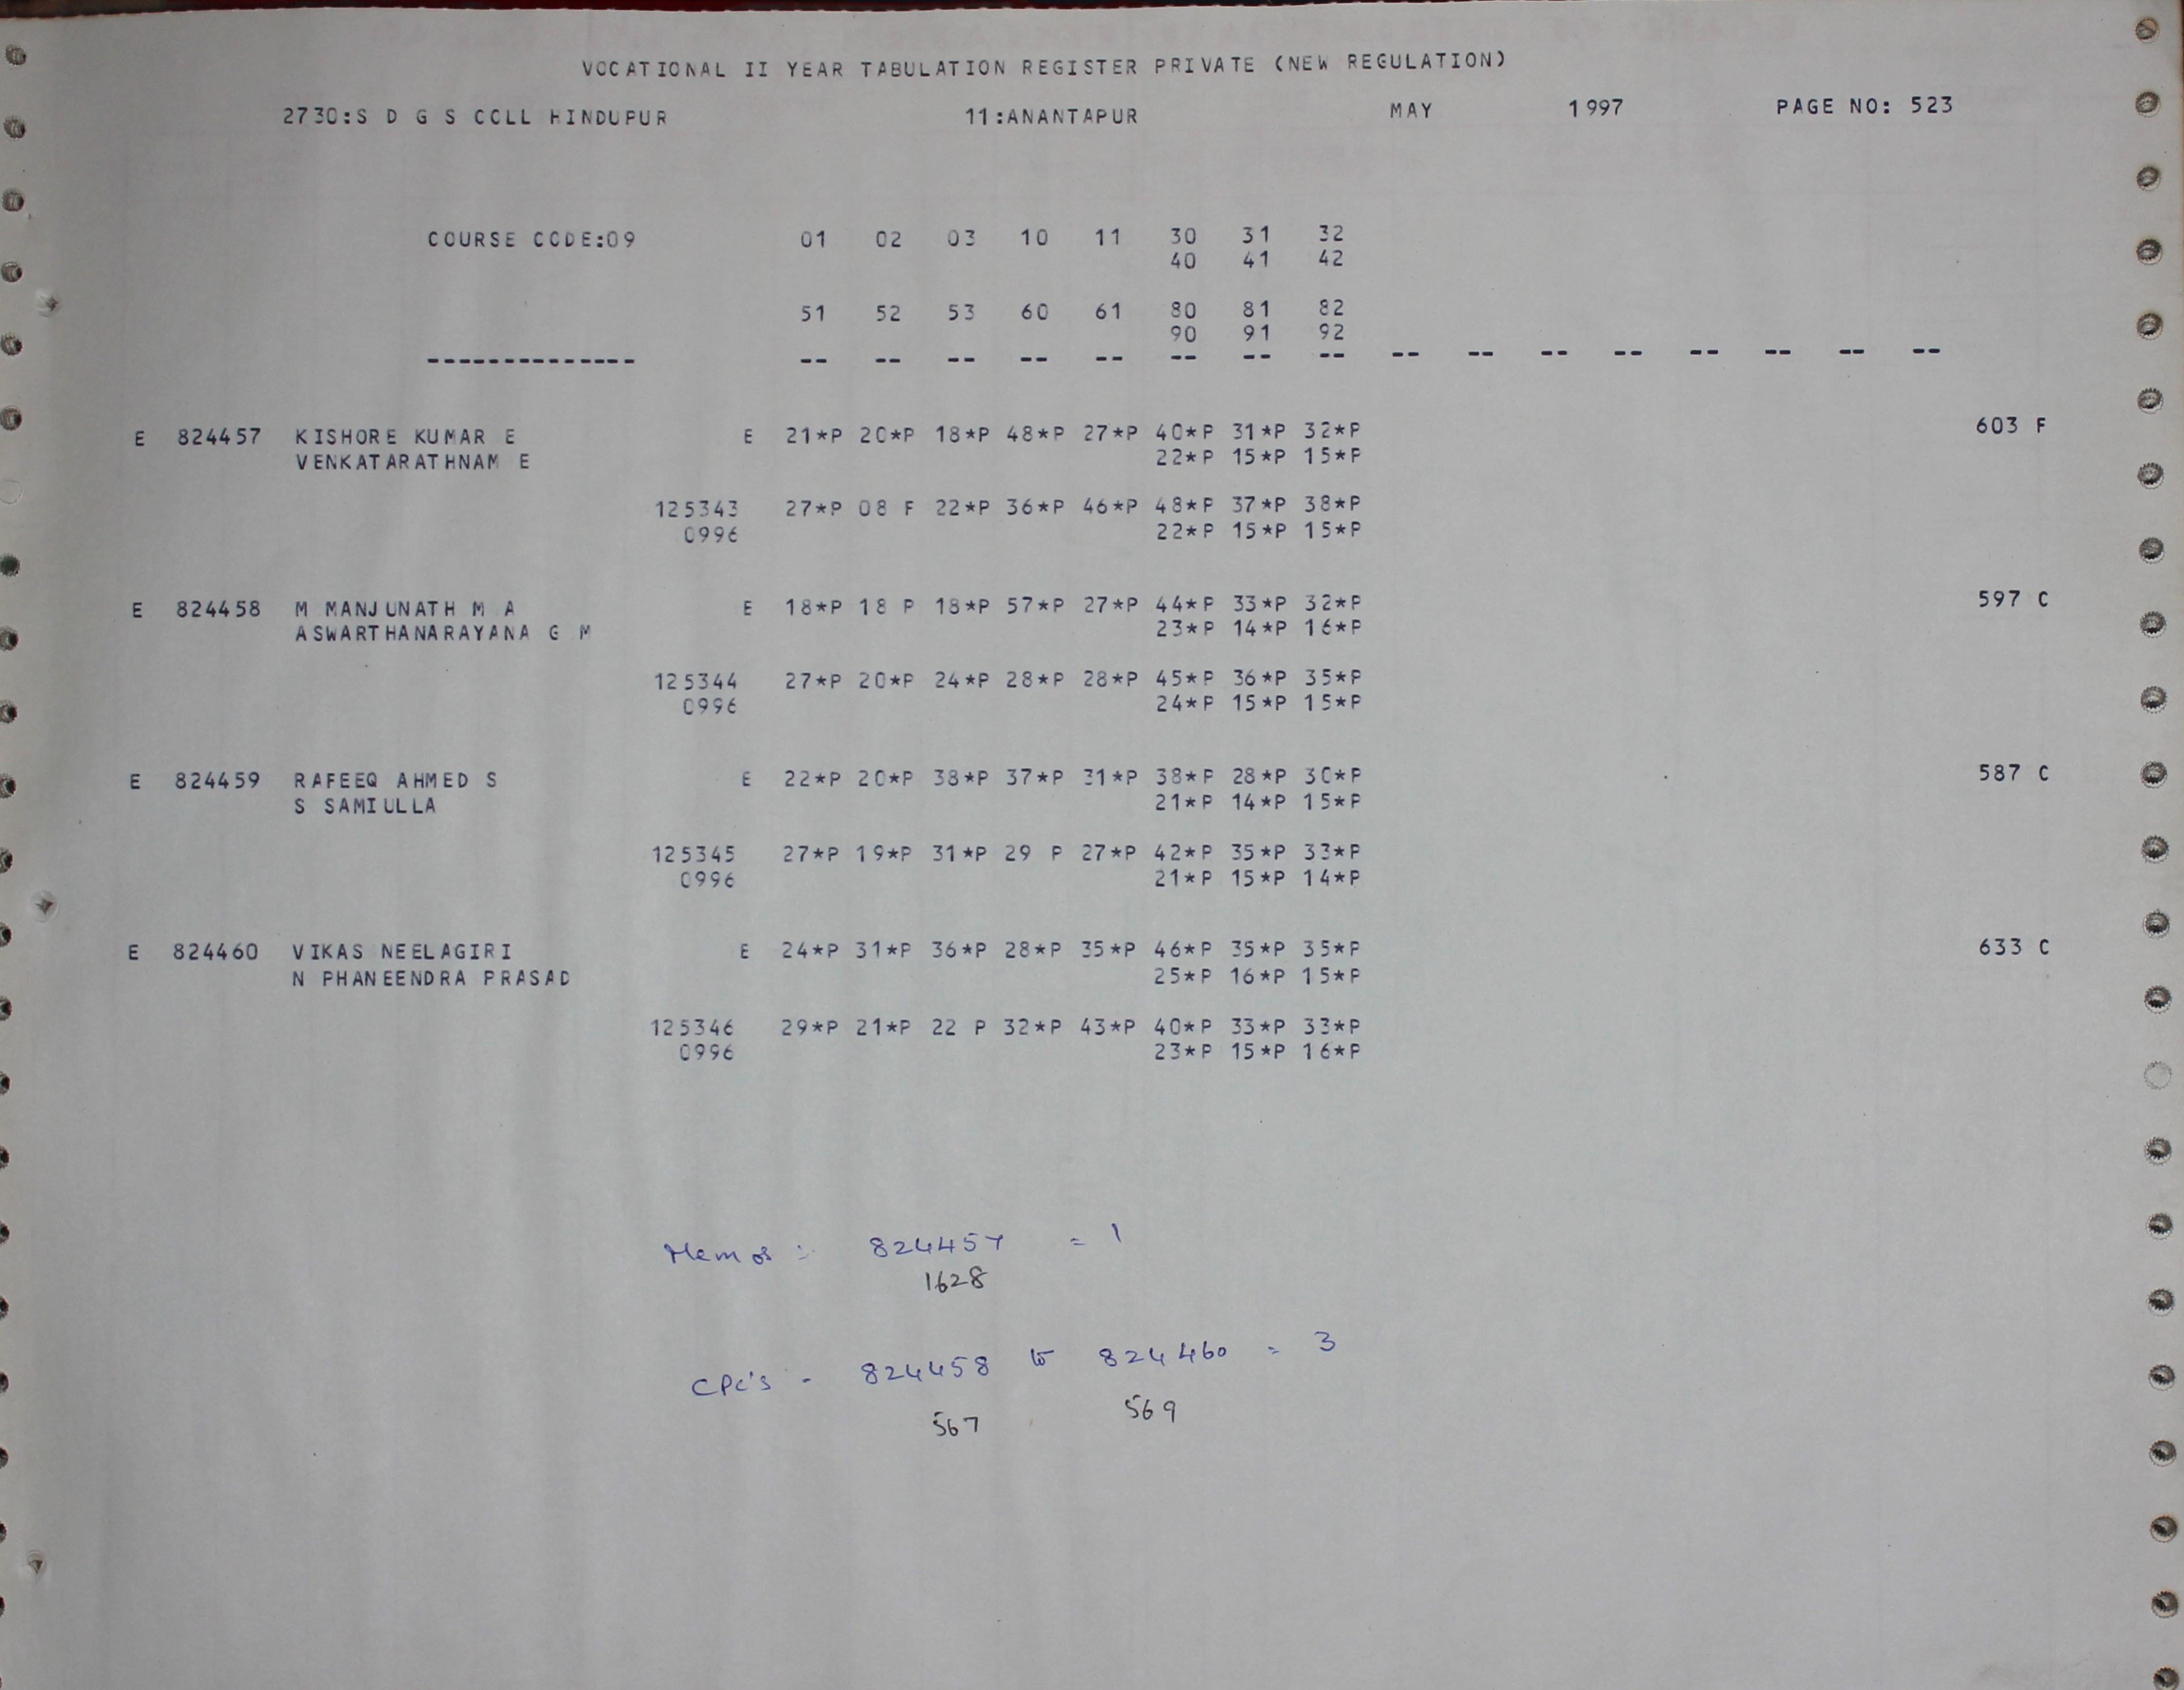 VOCATIONAL II YEAR TABULATION REGISTER PRIVATE (NEW REGULATION)
2730:S D G S COLL HINDUPUR 11:ANANTAPUR MAY 1997 PAGE NO: 523
COURSE CODE:09 01 02 03 10 11 30 31 32
40 41 42
51 52 53 60 61 80 81 82
90 91 92
-------------- -- -- -- -- -- -- -- -- -- -- -- -- -- -- -- --
E 824457 KISHORE KUMAR E E 21*P 20*P 18*P 48*P 27*P 40*P 31*P 32*P 603 F
VENKATARATHNAM E 22*P 15*P 15*P
125343 27*P 08 F 22*P 36*P 46*P 48*P 37*P 38*P
0996 22*P 15*P 15*P
E 824458 M MANJUNATH M A E 18*P 18 P 18*P 57*P 27*P 44*P 33*P 32*P 597 C
ASWARTHANARAYANA G M 23*P 14*P 16*P
125344 27*P 20*P 24*P 28*P 28*P 45*P 36*P 35*P
0996 24*P 15*P 15*P
E 824459 RAFEEQ AHMED S E 22*P 20*P 38*P 37*P 31*P 38*P 28*P 30*P 587 C
S SAMIULLA 21*P 14*P 15*P
125345 27*P 19*P 31*P 29 P 27*P 42*P 35*P 33*P
0996 21*P 15*P 14*P
E 824460 VIKAS NEELAGIRI E 24*P 31*P 36*P 28*P 35*P 46*P 35*P 35*P 633 C
N PHANEENDRA PRASAD 25*P 16*P 15*P
125346 29*P 21*P 22 P 32*P 43*P 40*P 33*P 33*P
0996 23*P 15*P 16*P
Memos :- 824457 = 1
1628
CPC's - 824458 to 824460 = 3
567 569